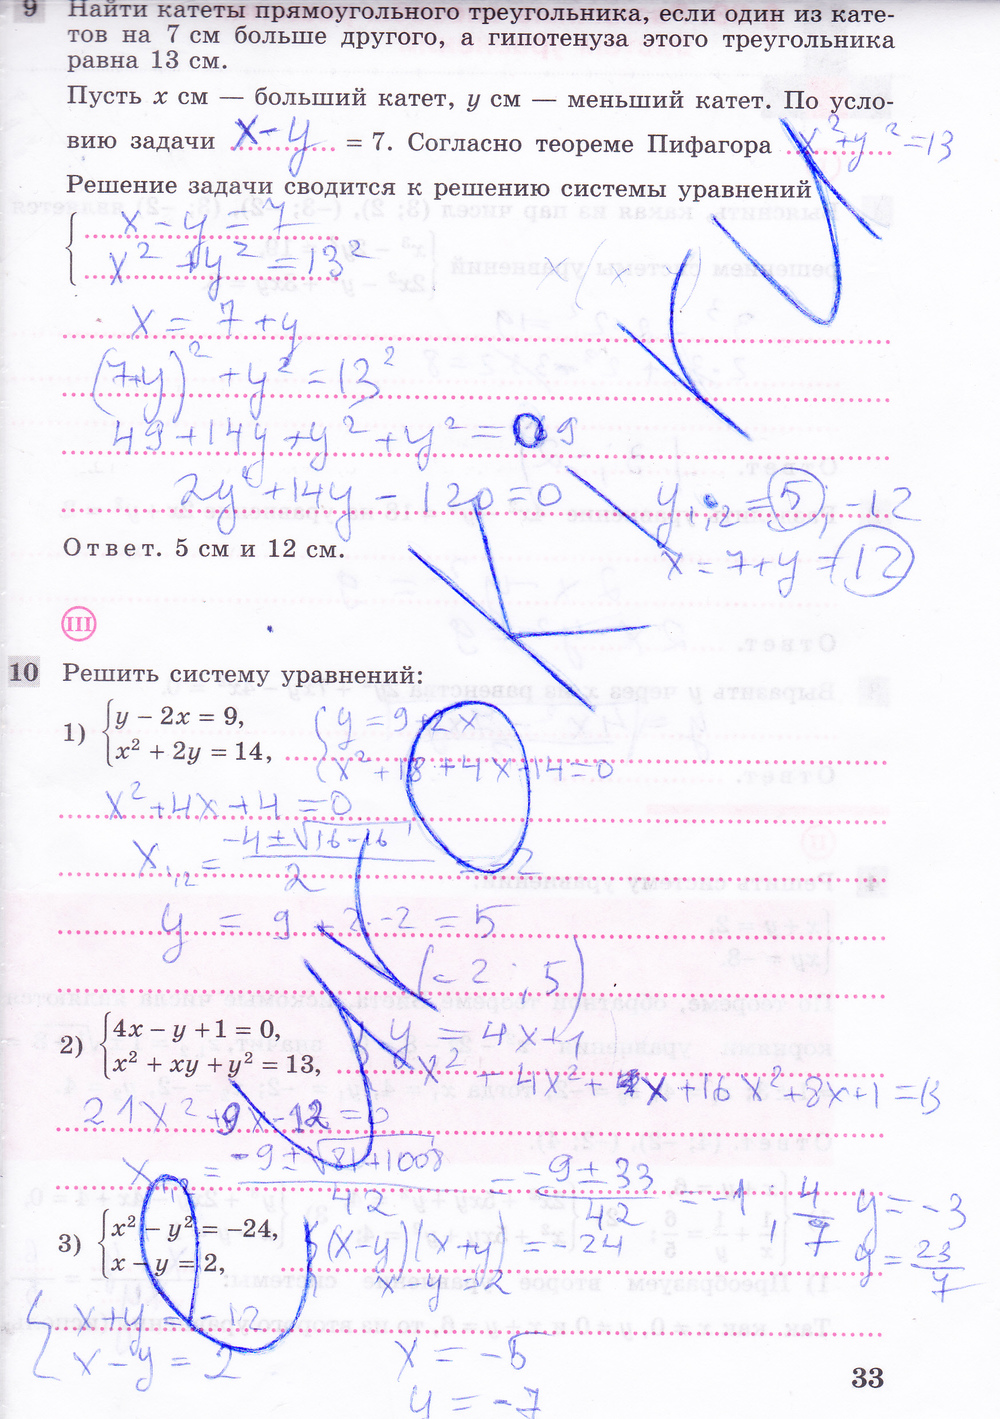 9 Найти катеты прямоугольного треугольника, если один из кате-
тов на 7 см больше другого, а гипотенуза этого треугольника
равна 13 см.
Пусть x см — больший катет, y см — меньший катет. По усло-
вию задачи x - y = 7. Согласно теореме Пифагора x² + y² = 13
Решение задачи сводится к решению системы уравнений
x - y = 7
x² + y² = 13²
x = 7 + y
(7+y)² + y² = 13²
49 + 14y + y² + y² = 169
2y² + 14y - 120 = 0 y₁,₂ = 5; -12
Ответ. 5 см и 12 см. x = 7 + y = 12
III
10 Решить систему уравнений:
1) y - 2x = 9, y = 9 + 2x
x² + 2y = 14, x² + 18 + 4x - 14 = 0
x² + 4x + 4 = 0
x₁,₂ = (-4 ± √16-16)/2 = -2
y = 9 + 2·-2 = 5
(-2; 5)
2) 4x - y + 1 = 0, y = 4x + 1
x² + xy + y² = 13, x² + 4x² + x + 16x² + 8x + 1 = 13
21x² + 9x - 12 = 0
x₁,₂ = (-9 ± √81+1008)/42 = (-9 ± 33)/42 = -1, 4/7 y = -3
y = 23/7
3) x² - y² = -24, (x-y)(x+y) = -24
x - y = 2, x - y = 2
x + y = -12
x - y = 2 x = -5
y = -7
33